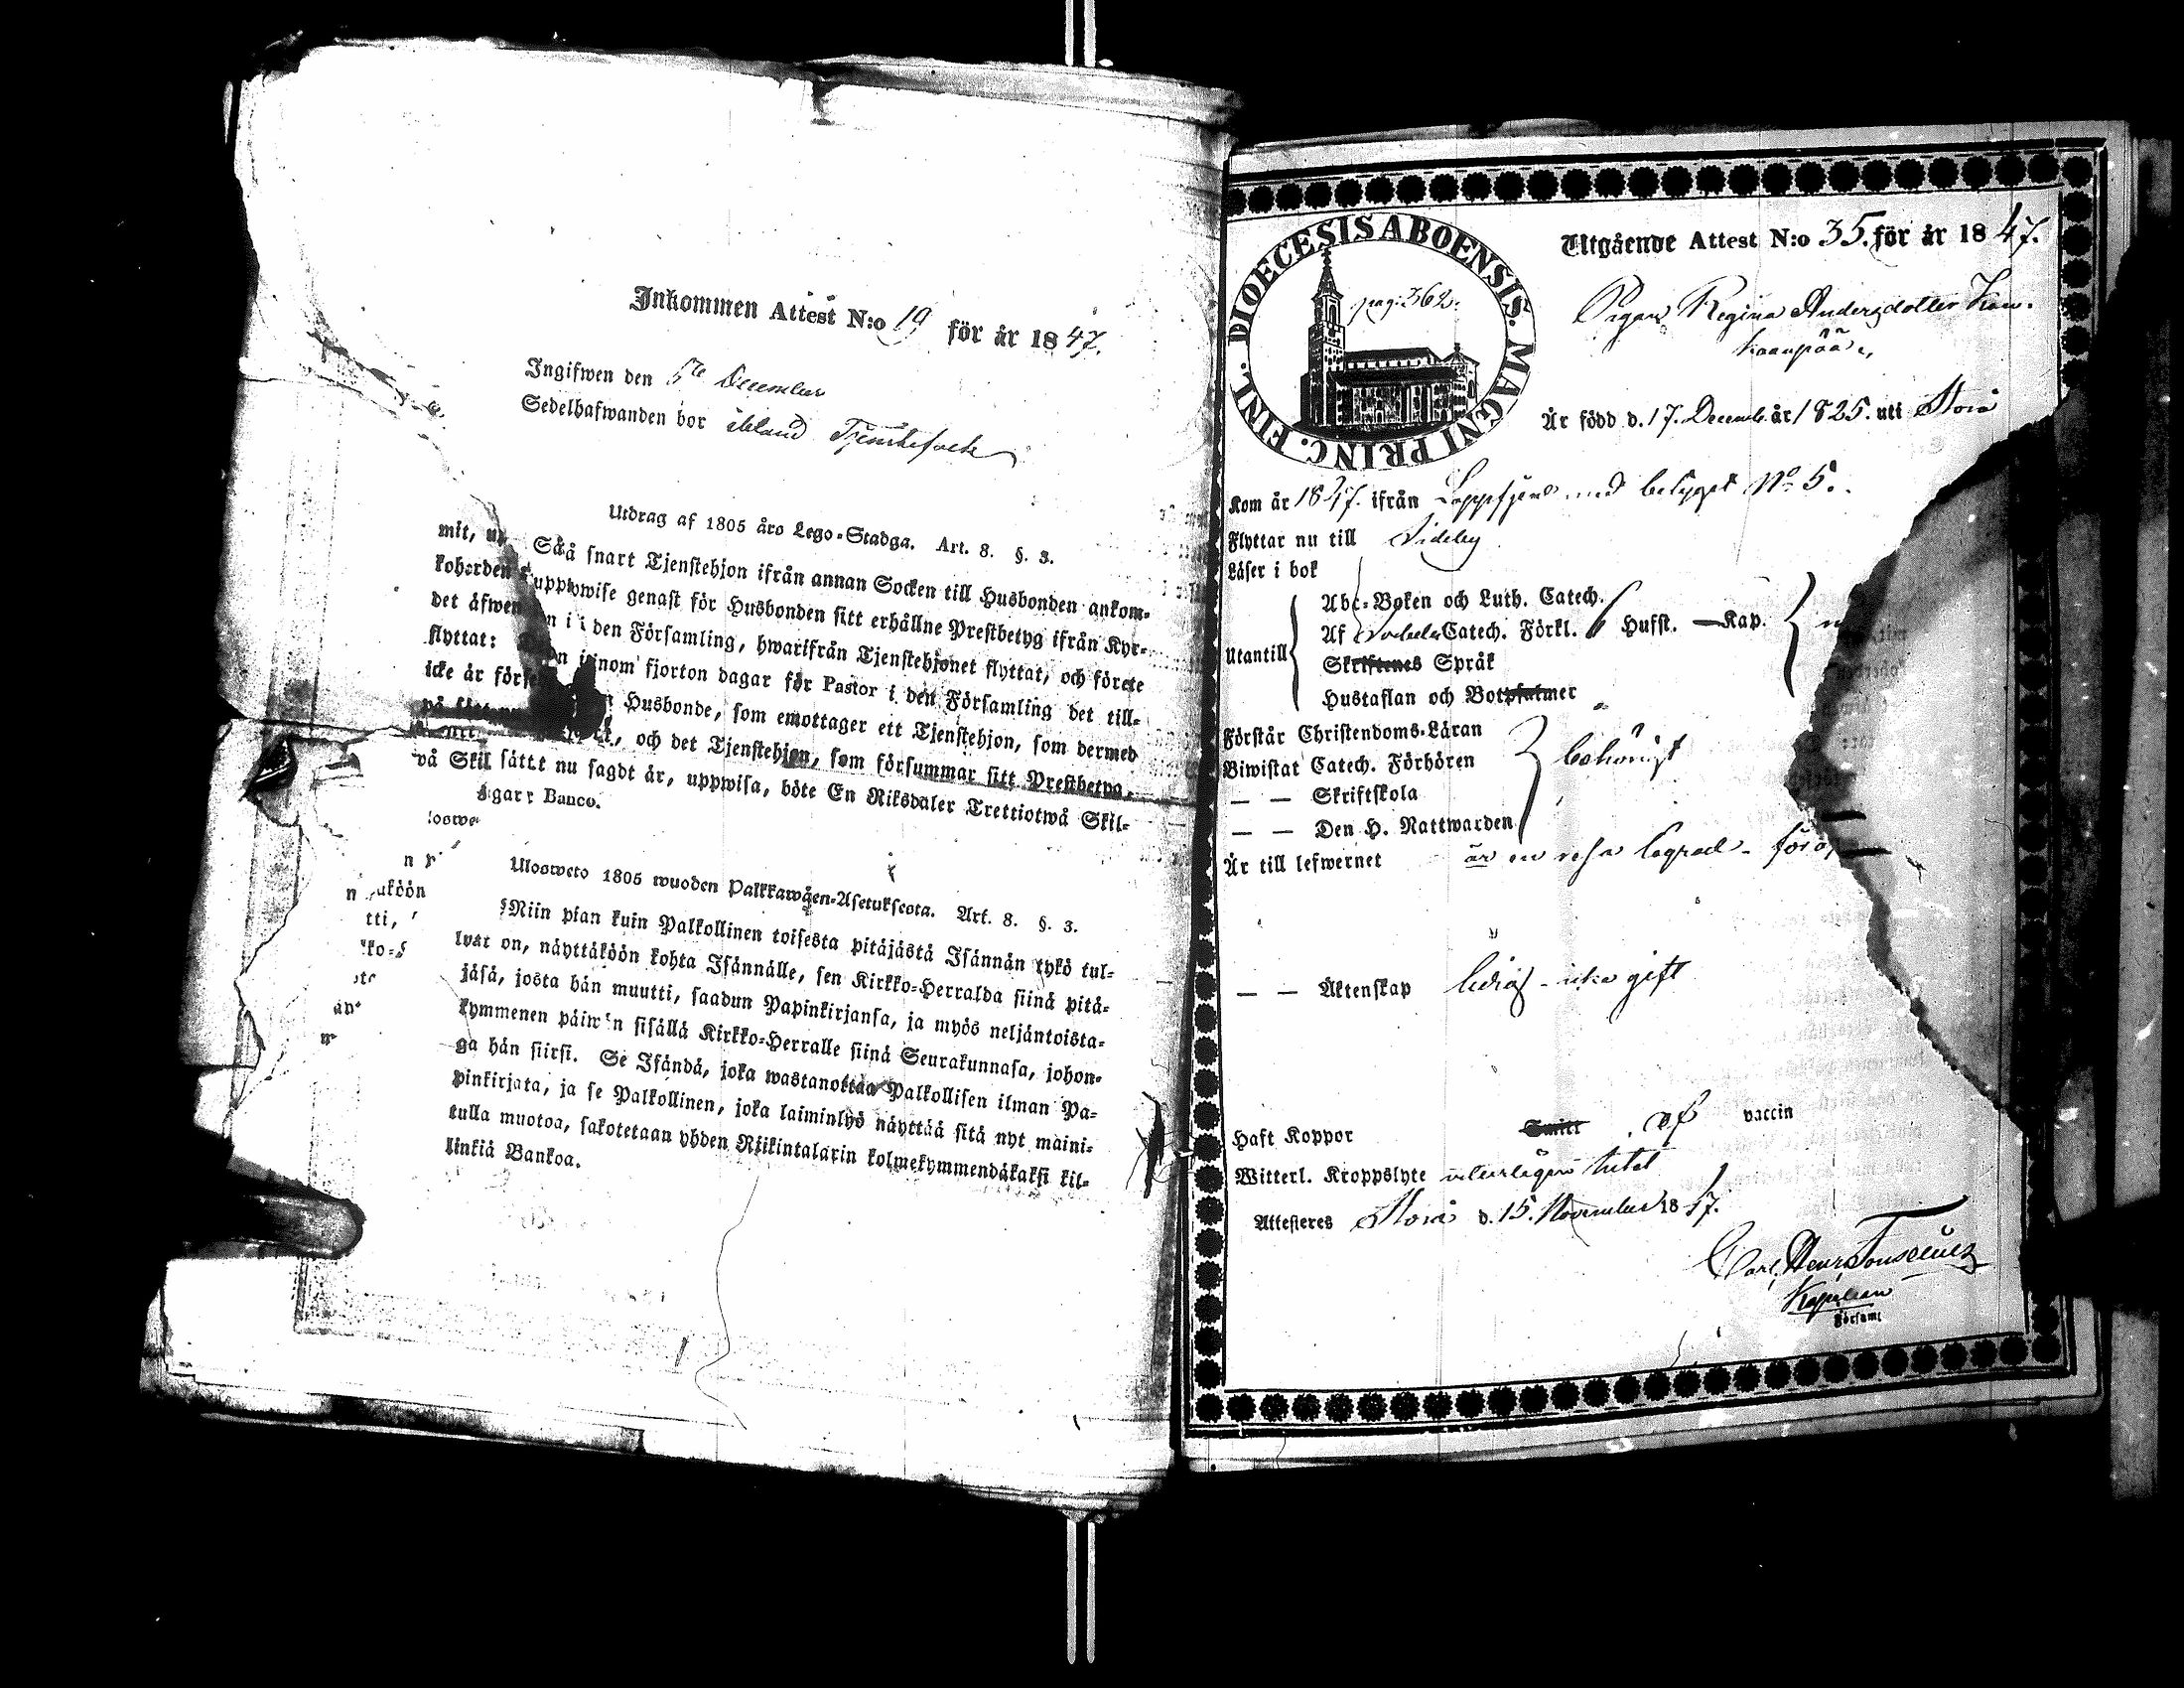 Inkommen Attest N:o 19 för år 1847.
Ingifwen den 5te December
Sedelhafwanden bor ibland Tjenstefolk
Utdrag af 1805 åro Lego-Stadga. Art. 8. §. 3.
Så snart Tjenstehjon ifrån annan Socken till Husbonden ankom-
mit, uppwise genast för Husbonden sitt erhållne Prestbetyg ifrån Kyr-
koherden i den Församling, hwarifrån Tjenstehjonet flyttat, och förete
det äfwen innom fjorton dagar för Pastor i den Församling det till-
flyttat: Husbonde, som emottager ett Tjenstehjon, som dermed
icke är och det Tjenstehjon, som försummar sitt Prestbetyg,
på sätt nu sagdt är, uppwisa, böte En Riksdaler Trettiotwå Skil-
Banco.
Ulosweto 1805 wuoden Palkkawäen-Asetuksesta. Art. 8. §. 3.
Niin pian kuin Palkollinen toisesta pitäjästä Isännän tykö tul-
lut on, näyttäköön kohta Isännälle, sen Kirkko-Herralda siinä pitä-
jäsä, josta hän muutti, saadun Papinkirjansa, ja myös neljäntoista-
kymmenen päiwän sisällä Kirkko-Herralle siinä Seurakunnasa, johon-
ga hän siirsi. Se Isändä, joka wastanottaa Palkollisen ilman Pa-
pinkirjata, ja se Palkollinen, joka laiminlyö näyttää sitä nyt maini-
tulla muotoa, sakotetaan yhden Riikintalarin kolmekymmendäkaksi kil-
linkiä Bankoa.
DIOECESIS ABOENSIS. MAGNI PRINC. FINL.
pag: 362.
Utgående Attest N:o 35. för år 1847.
Pigan Regina Andersdotter
Är född d. 17. Decemb. år 1825. uti Storå
Kom år 1847. ifrån Lappfjerd med betyget No 5.
Flyttar nu till Sideby
Läser i bok
Utantill
Abc-Boken och Luth. Catech.
Af Catech. Förkl. Husst. — Kap.
Skriftenes Språk
Hustaflan och Botpsalmer
Förstår Christendoms-Läran
Biwistat Catech. Förhören behörigt
— — Skriftskola
— — Den H. Nattwarden
Är till lefwernet är en resa lägrad -
— — Äktenskap ledig - icke gift
Haft Koppor Smitt vaccin
Witterl. Kroppslyte
Attesteras Storå d. 15. November 1847.
Carl Henr.
Kapellan
Församl